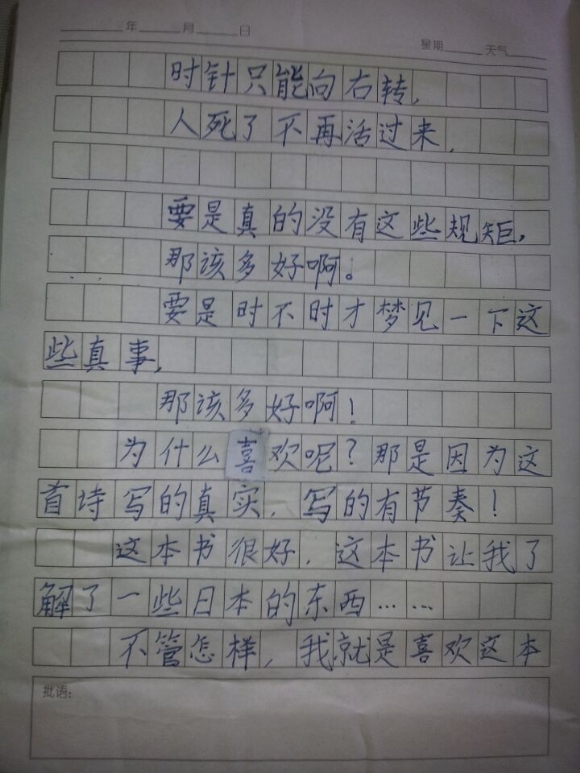 年 月 日
星期 天气
时针只能向右转，
人死了不再活过来，
要是真的没有这些规矩，
那该多好啊。
要是时不时才梦见一下这
些真事，
那该多好啊！
为什么喜欢呢？那是因为这
首诗写的真实，写的有节奏！
这本书很好，这本书让我了
解了一些日本的东西……
不管怎样，我就是喜欢这本
批语：